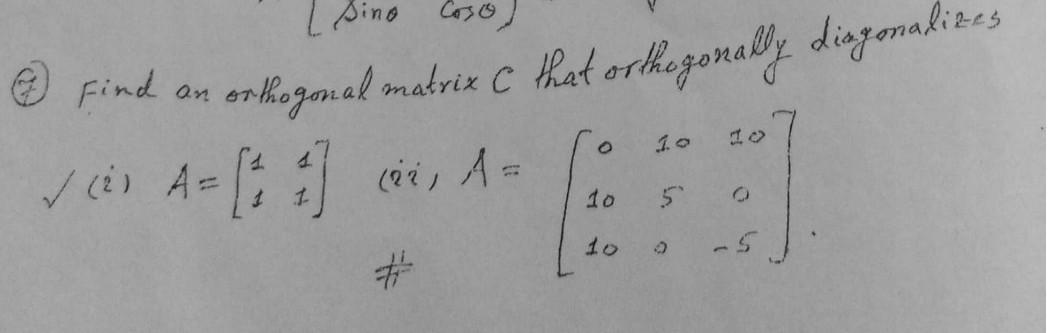 [ Sinθ Cosθ ]
⑦ Find an orthogonal matrix C that orthogonally diagonalizes
✓ (i) A = [1 1; 1 1] (ii, A = [0 10 10; 10 5 0; 10 0 -5].
#